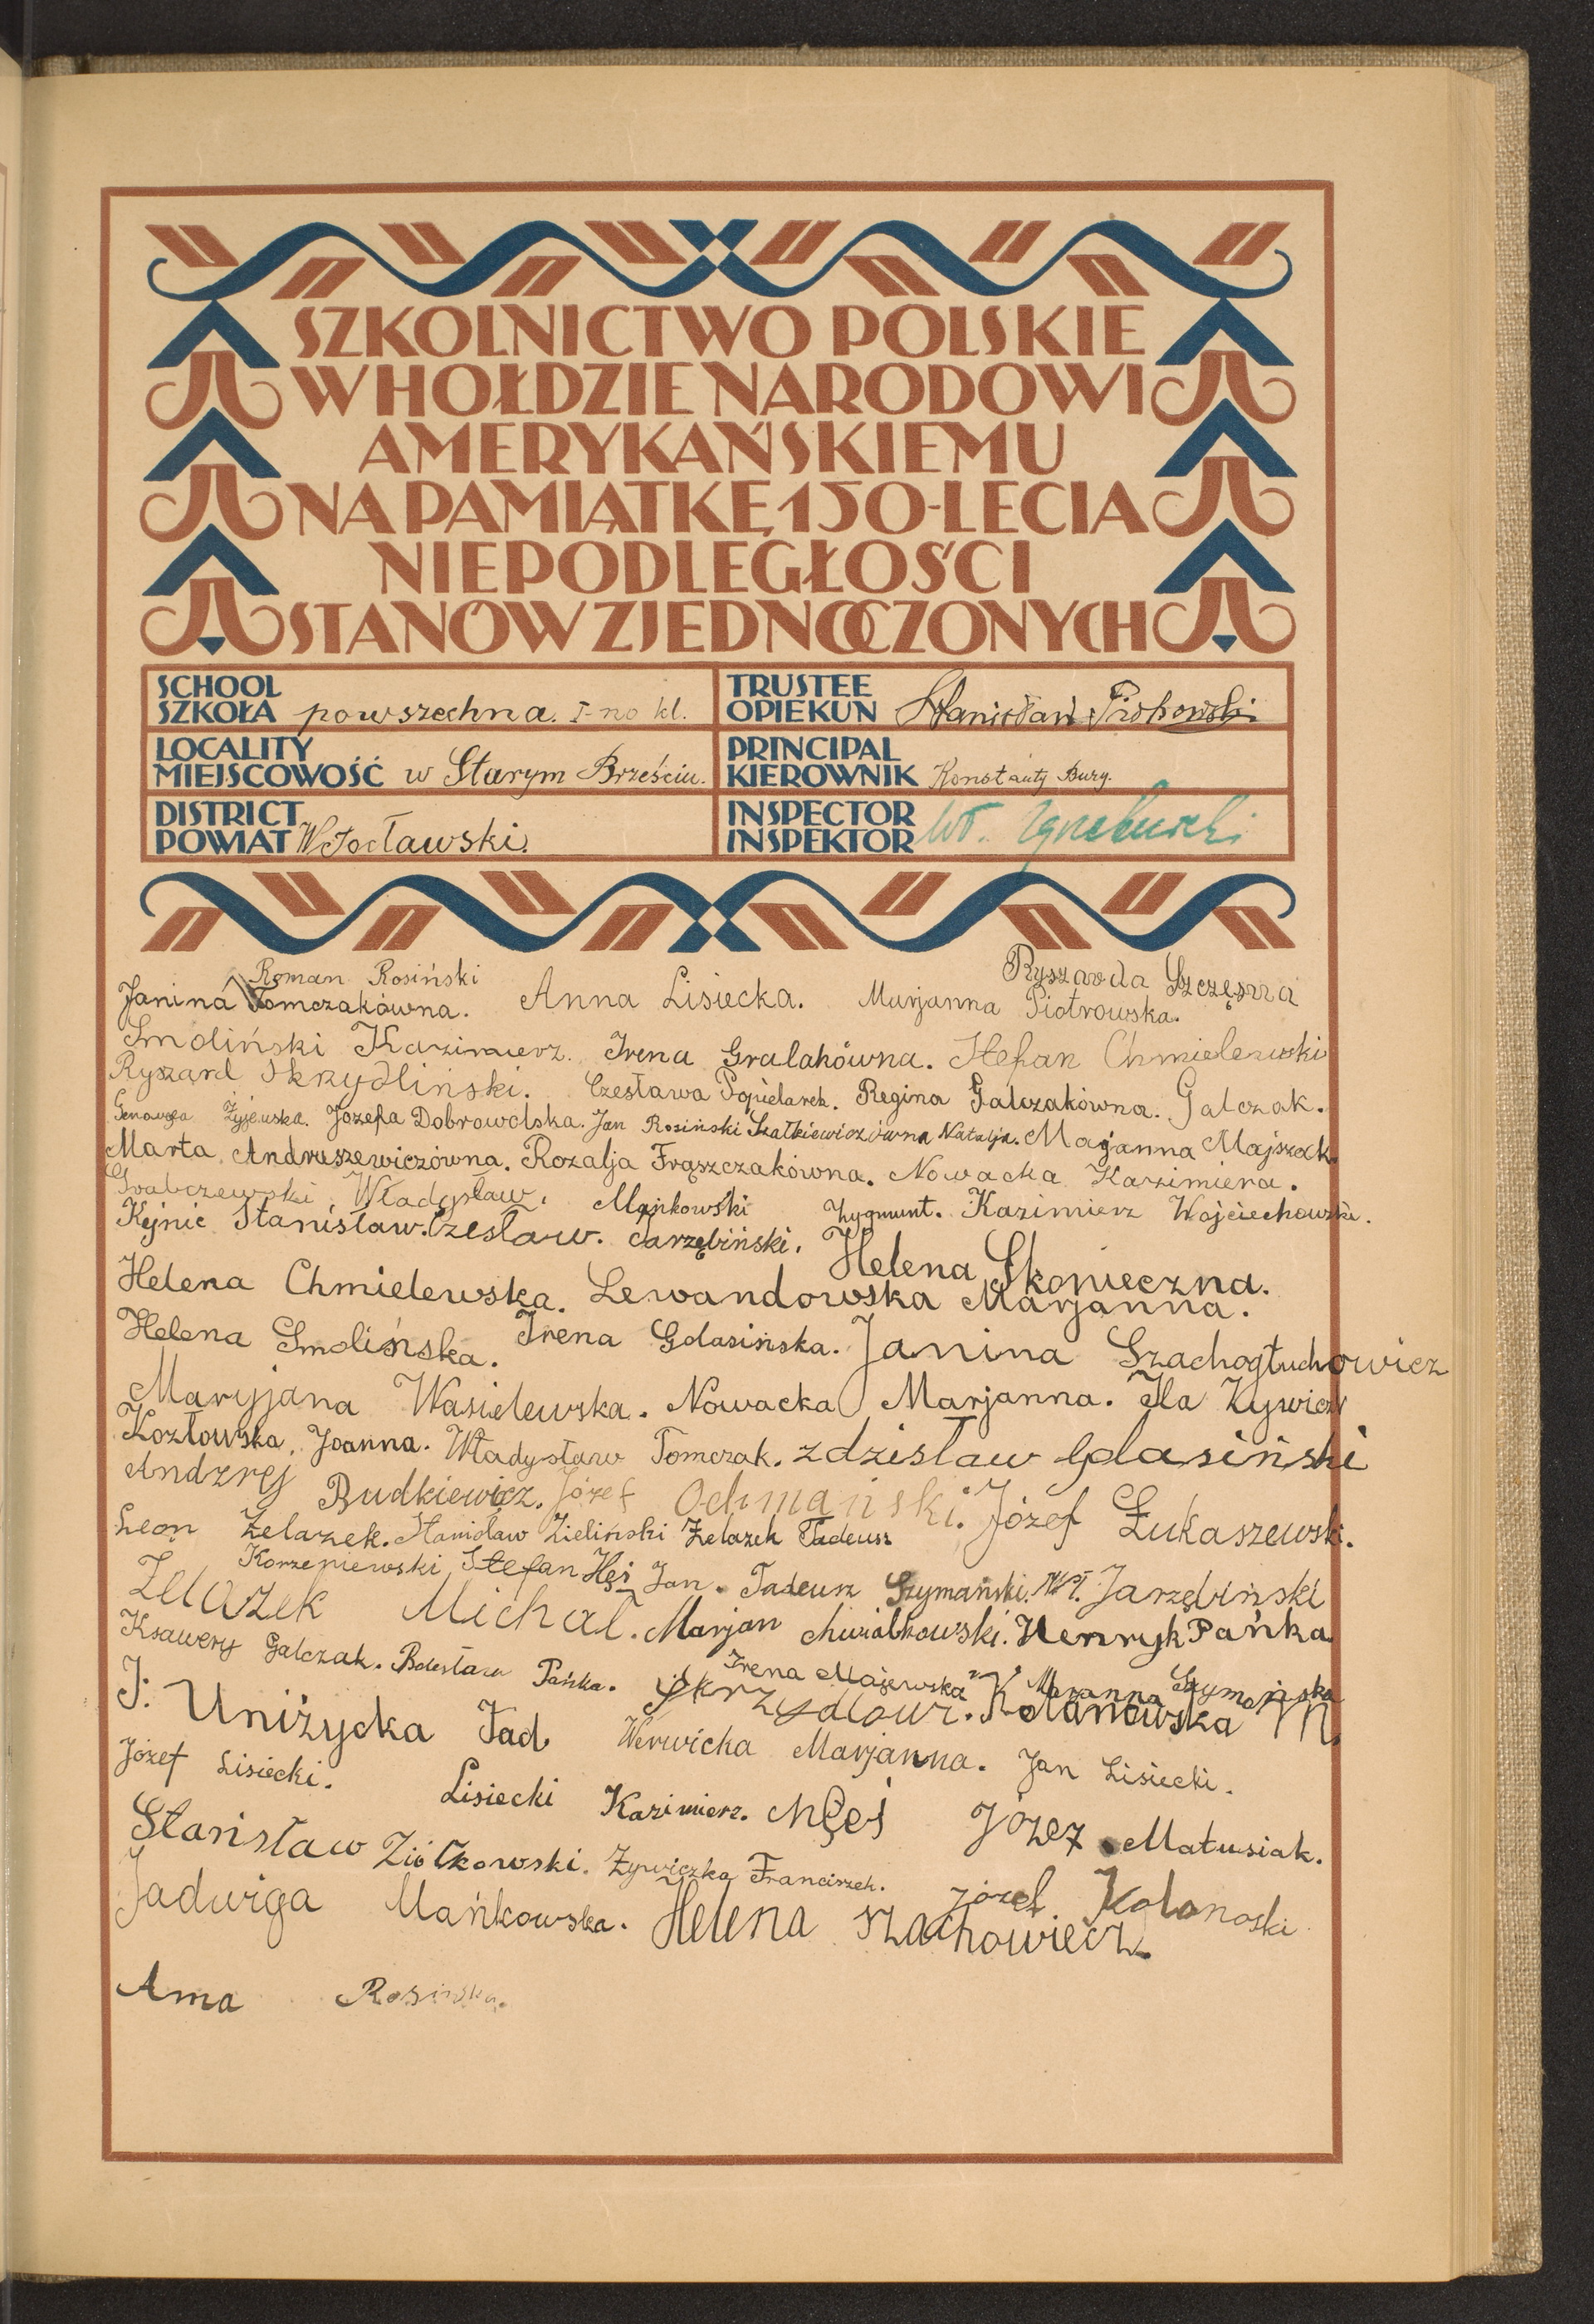 SZKOLNICTWO POLSKIE
W HOŁDZIE NARODOWI
AMERYKAŃSKIEMU
NA PAMIĄTKĘ 150-LECIA
NIEPODLEGŁOŚCI
STANÓW ZJEDNOCZONYCH
SCHOOL
SZKOŁA powszechna. I-no kl.
TRUSTEE
OPIEKUN Stanisław Piotrowski
LOCALITY
MIEJSCOWOŚĆ w Starym Brześciu.
PRINCIPAL
KIEROWNIK Konstanty Bury.
DISTRICT
POWIAT Włocławski.
INSPECTOR
INSPEKTOR Wł.
Roman Rosiński Ryszarda Szczęsna
Janina Tomczakówna. Anna Lisiecka. Marjanna Piotrowska.
Smoliński Kazimierz. Irena Gralakówna. Stefan Chmielewski
Ryszard Skrydliński. Czesława Popielarek. Regina Galczakówna. Galczak.
Genowefa Żyjewska. Józefa Dobrowolska. Jan Rosiński Szatkiewiczówna Natalja. Marjanna Majszak.
Marta Andruszewiczówna. Rozalja Frąszczakówna. Nowacka Kazimiera.
Grabczewski Władysław. Mańkowski Zygmunt. Kazimierz Wojciechowski.
Kejnic Stanisław. Czesław. Jarzębiński. Helena Skonieczna.
Helena Chmielewska. Lewandowska Marjanna.
Helena Smolińska. Irena Gdasińska. Janina Szachogłuchowicz
Maryjana Wasielewska. Nowacka Marjanna. Ila Zywicz
Kozłowska, Joanna. Władysław Tomczak. Zdzisław Gdasiński
Andrzej Budkiewicz. Józef Ochmański. Józef Łukaszewski.
Leon Żelazek. Stanisław Zieliński Żelazek Tadeusz
Korzeniewski Stefan Hęś Jan. Tadeusz Szymański. Jarzębiński
Żelazek Michał. Marjan Chwiałkowski. Henryk Pańka
Ksawery Galczak. Bolesław Pańka. Irena Majewska Maranna Szymańska
J. Uniżycka Tad Skrzydlowr. Kolanowska M.
Werwicka Marjanna. Jan Lisiecki.
Józef Lisiecki. Lisiecki Kazimierz. Hęś Józez. Matusiak.
Stanisław Ziółkowski. Żywiczka Franciszek. Józef Kolanoski
Jadwiga Mańkowska. Helena Szachowiecz.
Anna Rosinska.